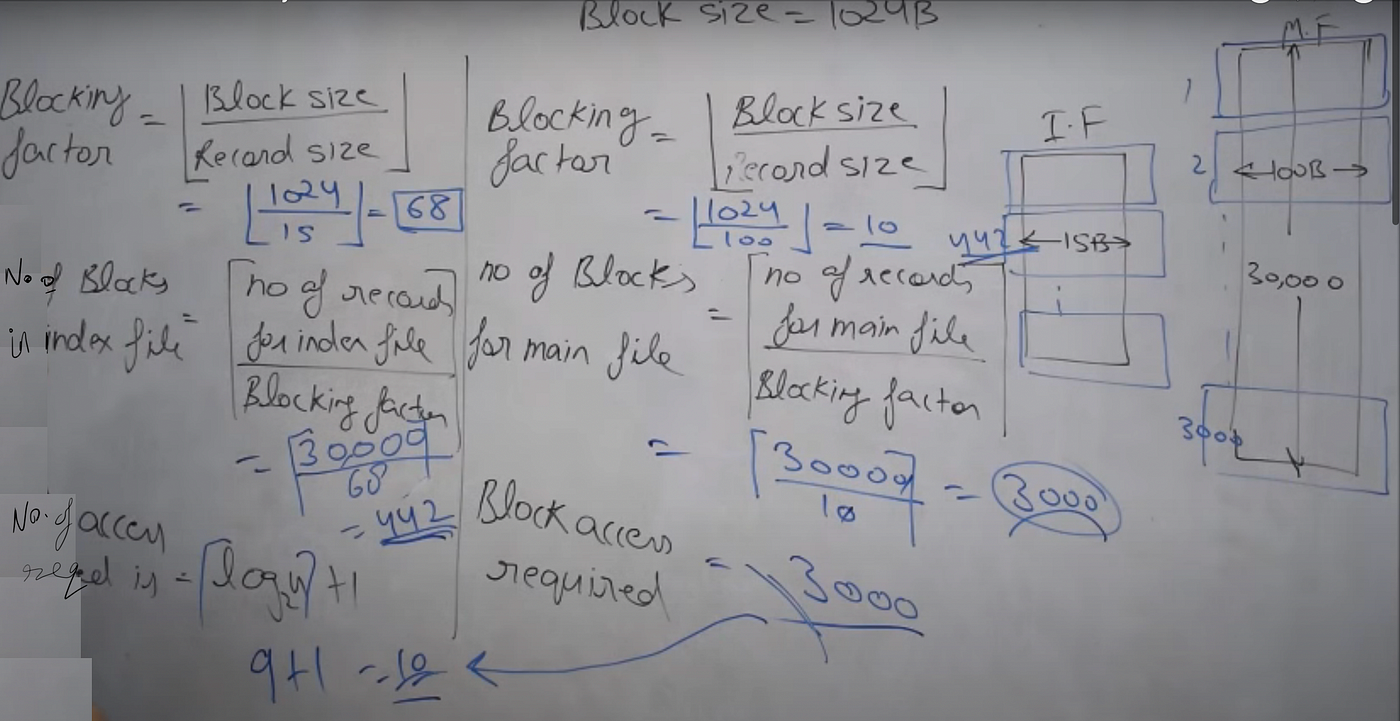 Block size = 1024B
Blocking factor = ⌊Block size / Record size⌋
= ⌊1024 / 15⌋ = 68
No. of Blocks in index file = ⌈no of records for index file / Blocking factor⌉
= ⌈30,000 / 68⌉
= 442
No. of access reqed is = ⌈log₂n⌉ + 1
9+1 = 10
Blocking factor = ⌊Block size / Record size⌋
= ⌊1024 / 100⌋ = 10
no of Blocks for main file = ⌈no of records for main file / Blocking factor⌉
= ⌈30000 / 10⌉ = 3000
Block access required = 3000
I.F
442
15B
M.F
1
2
100B
30,000
3000